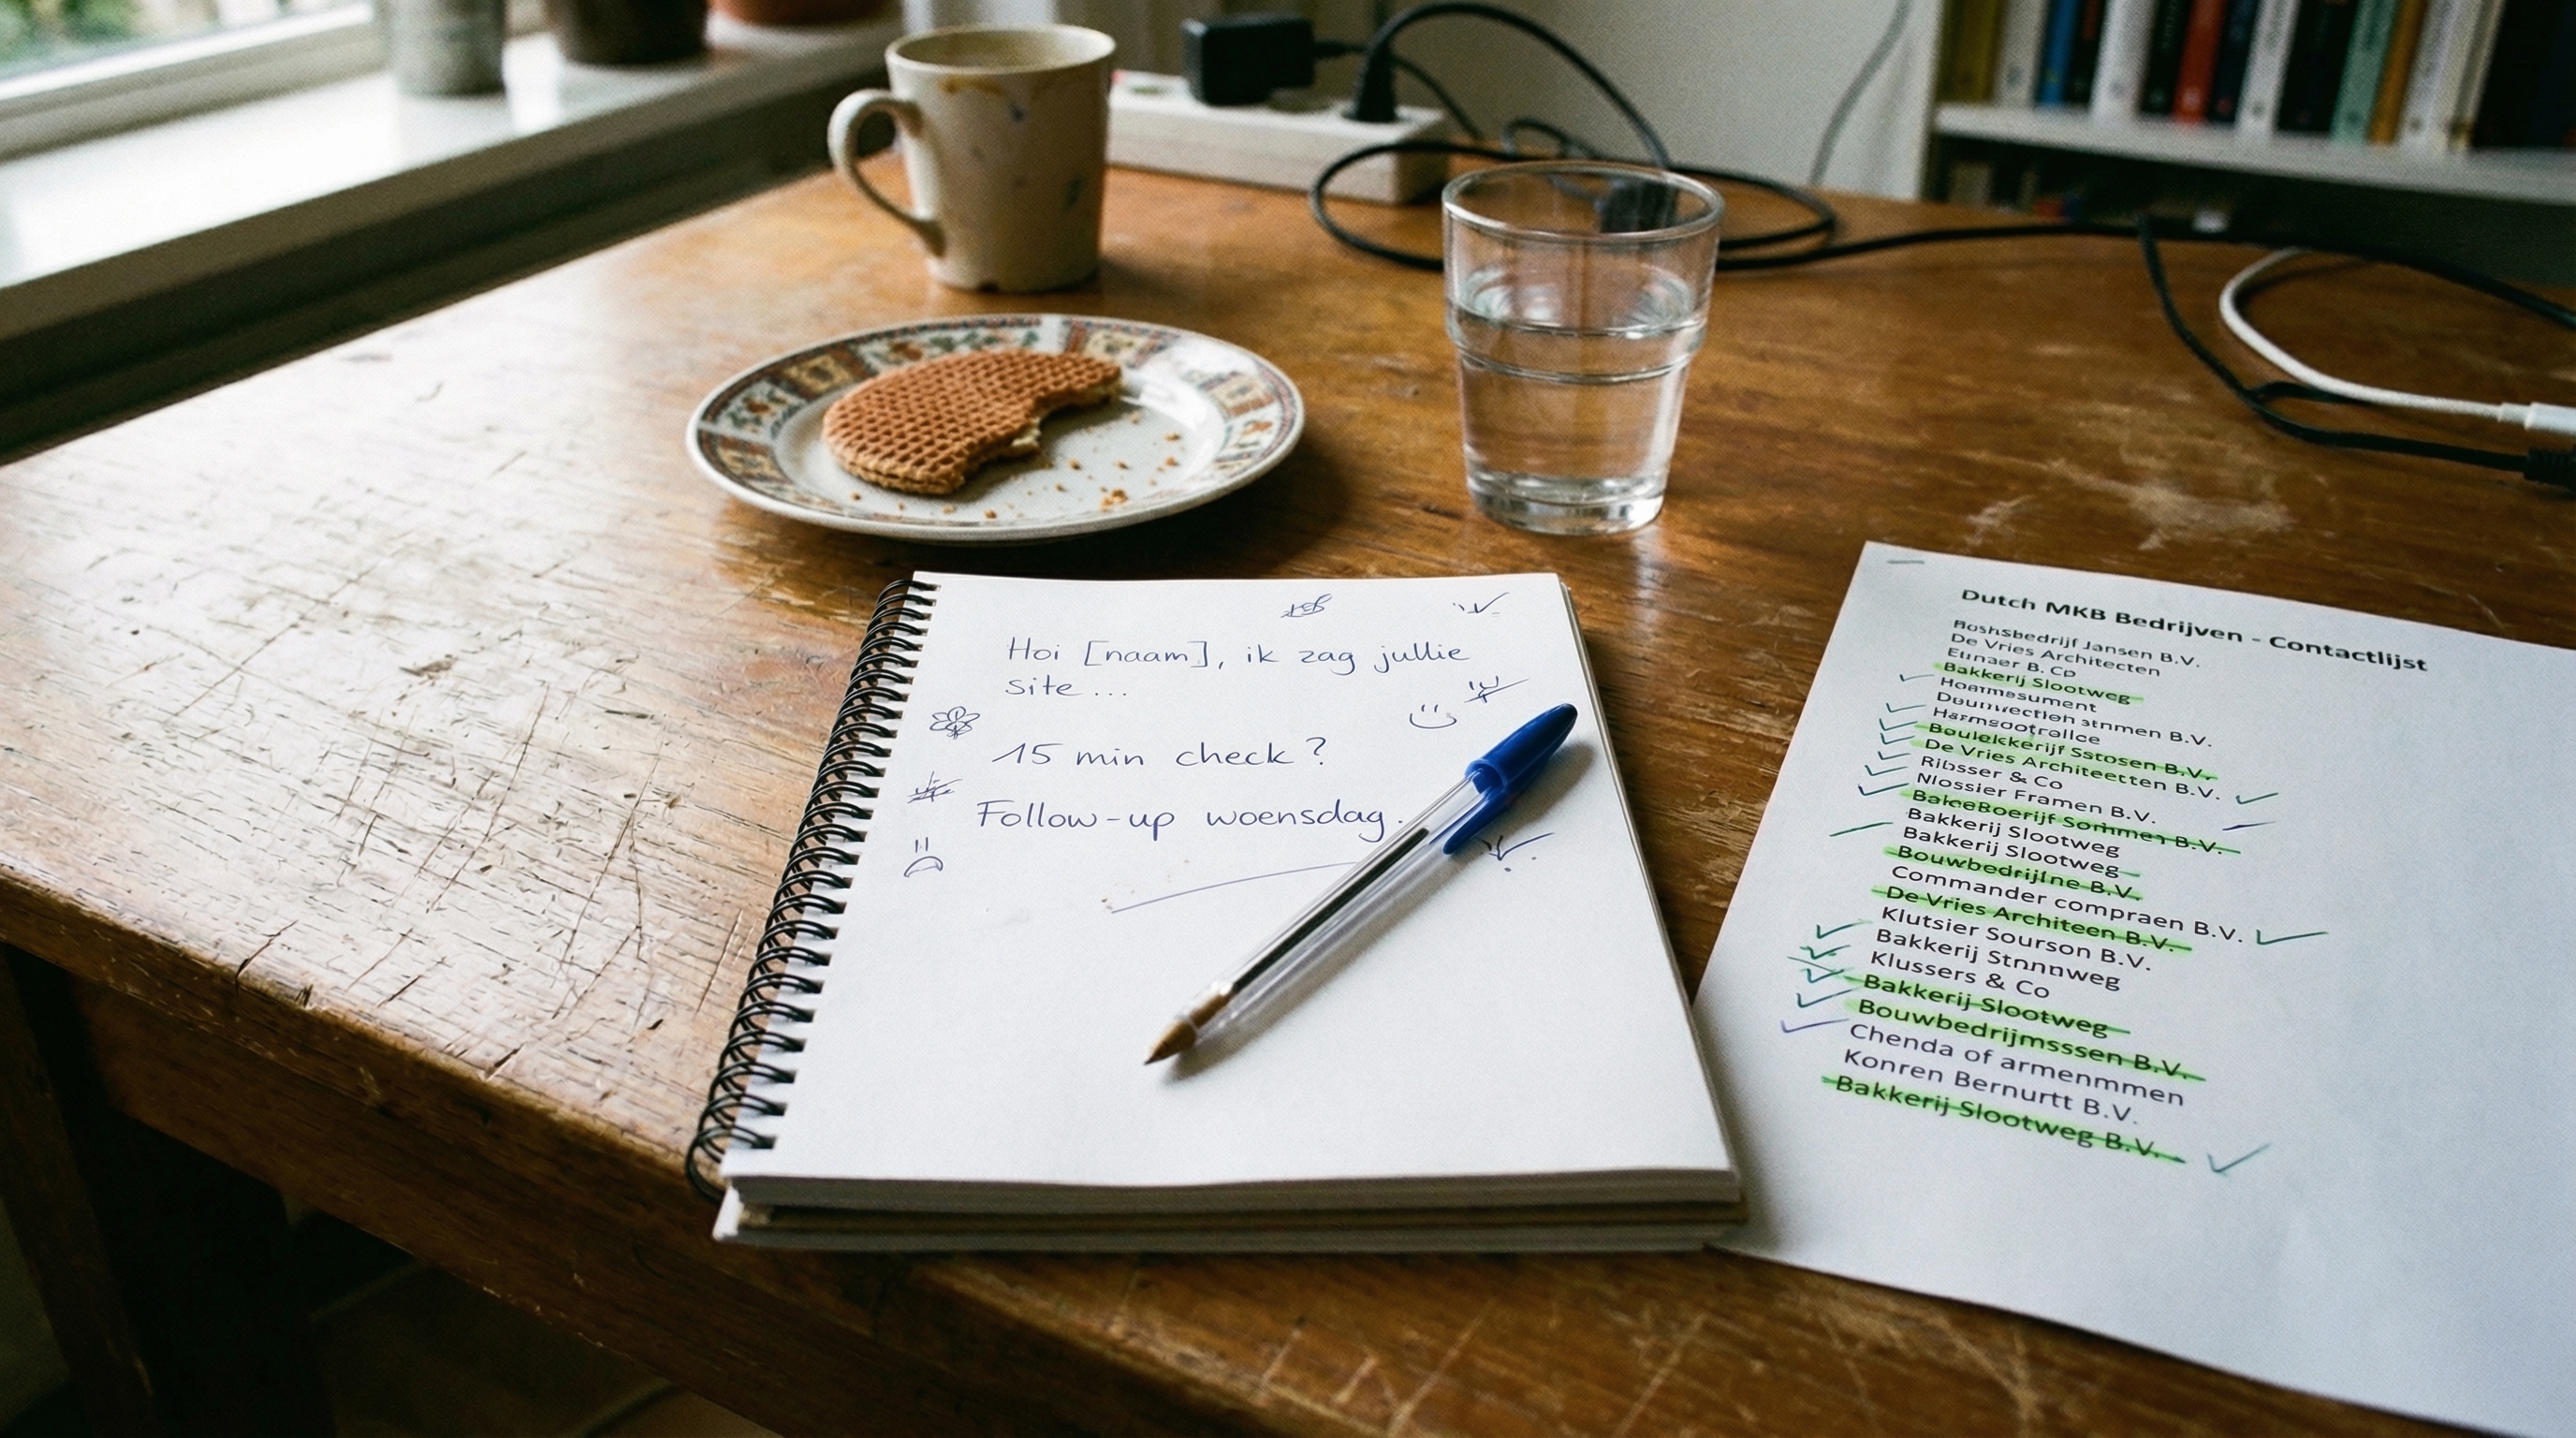 Hoi [naam], ik zag jullie
site...
15 min check?
Follow-up woensdag.
Dutch MKB Bedrijven - Contactlijst
Jansen B.V.
De Vries Architecten
Bakkerij Slootweg
B.V.
Boulekkerijf Sstosen B.V.
De Vries Architeetten B.V.
Ribsser & Co
Nlossier Framen B.V.
BakeeBoerijf Sommen B.V.
Bakkerij Slootweg
Bakkerij Slootweg
Bouwbedrijlne B.V.
Commander compraen B.V.
De Vries Architeen B.V.
Klutsier Sourson B.V.
Bakkerij Stnnnweg
Klussers & Co
Bakkerij Slootweg
Bouwbedrijmsssen B.V.
Chenda of armenmmen
Konren Bernurtt B.V.
Bakkerij Slootweg B.V.